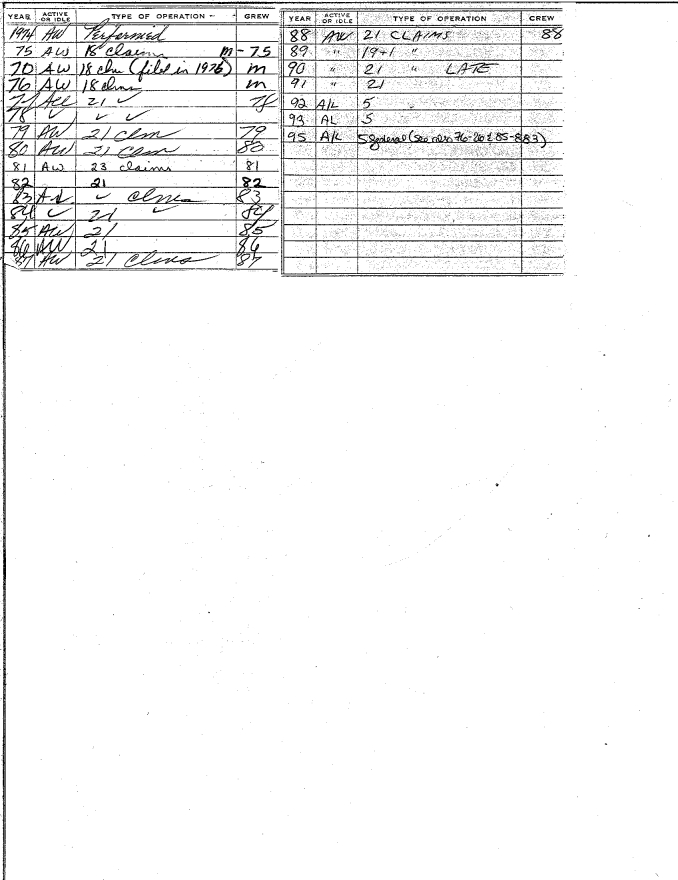 YEAR ACTIVE OR IDLE TYPE OF OPERATION CREW
1974 AW Performed
75 AW 18 claims m-75
70 AW 18 clm (filed in 1976) m
76 AW 18 clms m
77 21 ✓ 78
78 ✓ ✓ ✓
79 AW 21 clm 79
80 AW 21 clm 80
81 AW 23 claims 81
82 21 82
83 ✓ clms 83
84 ✓ 21 ✓ 84
85 AW 21 85
86 AW 21 86
87 AW 21 clms 87
YEAR ACTIVE OR IDLE TYPE OF OPERATION CREW
88 AW 21 CLAIMS 88
89 " 19+1 "
90 " 21 " LATE
91 " 21
92 A/L 5
93 AL 5
95 A/L 5 general (see